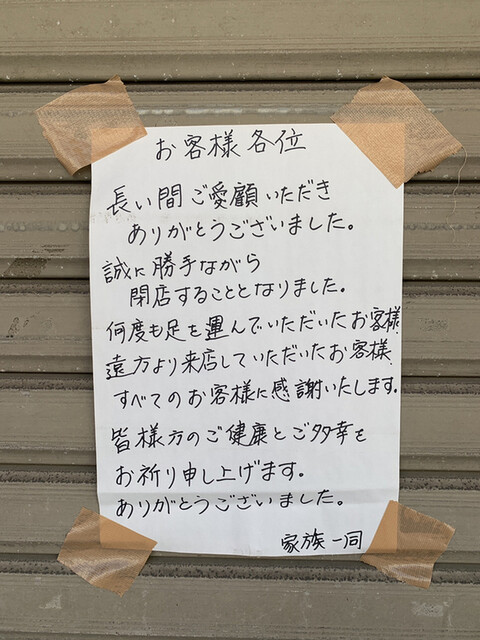 お客様各位
長い間ご愛顧いただき
ありがとうございました。
誠に勝手ながら
閉店することとなりました。
何度も足を運んでいただいたお客様
遠方より来店していただいたお客様
すべてのお客様に感謝いたします。
皆様方のご健康とご多幸を
お祈り申し上げます。
ありがとうございました。
家族一同